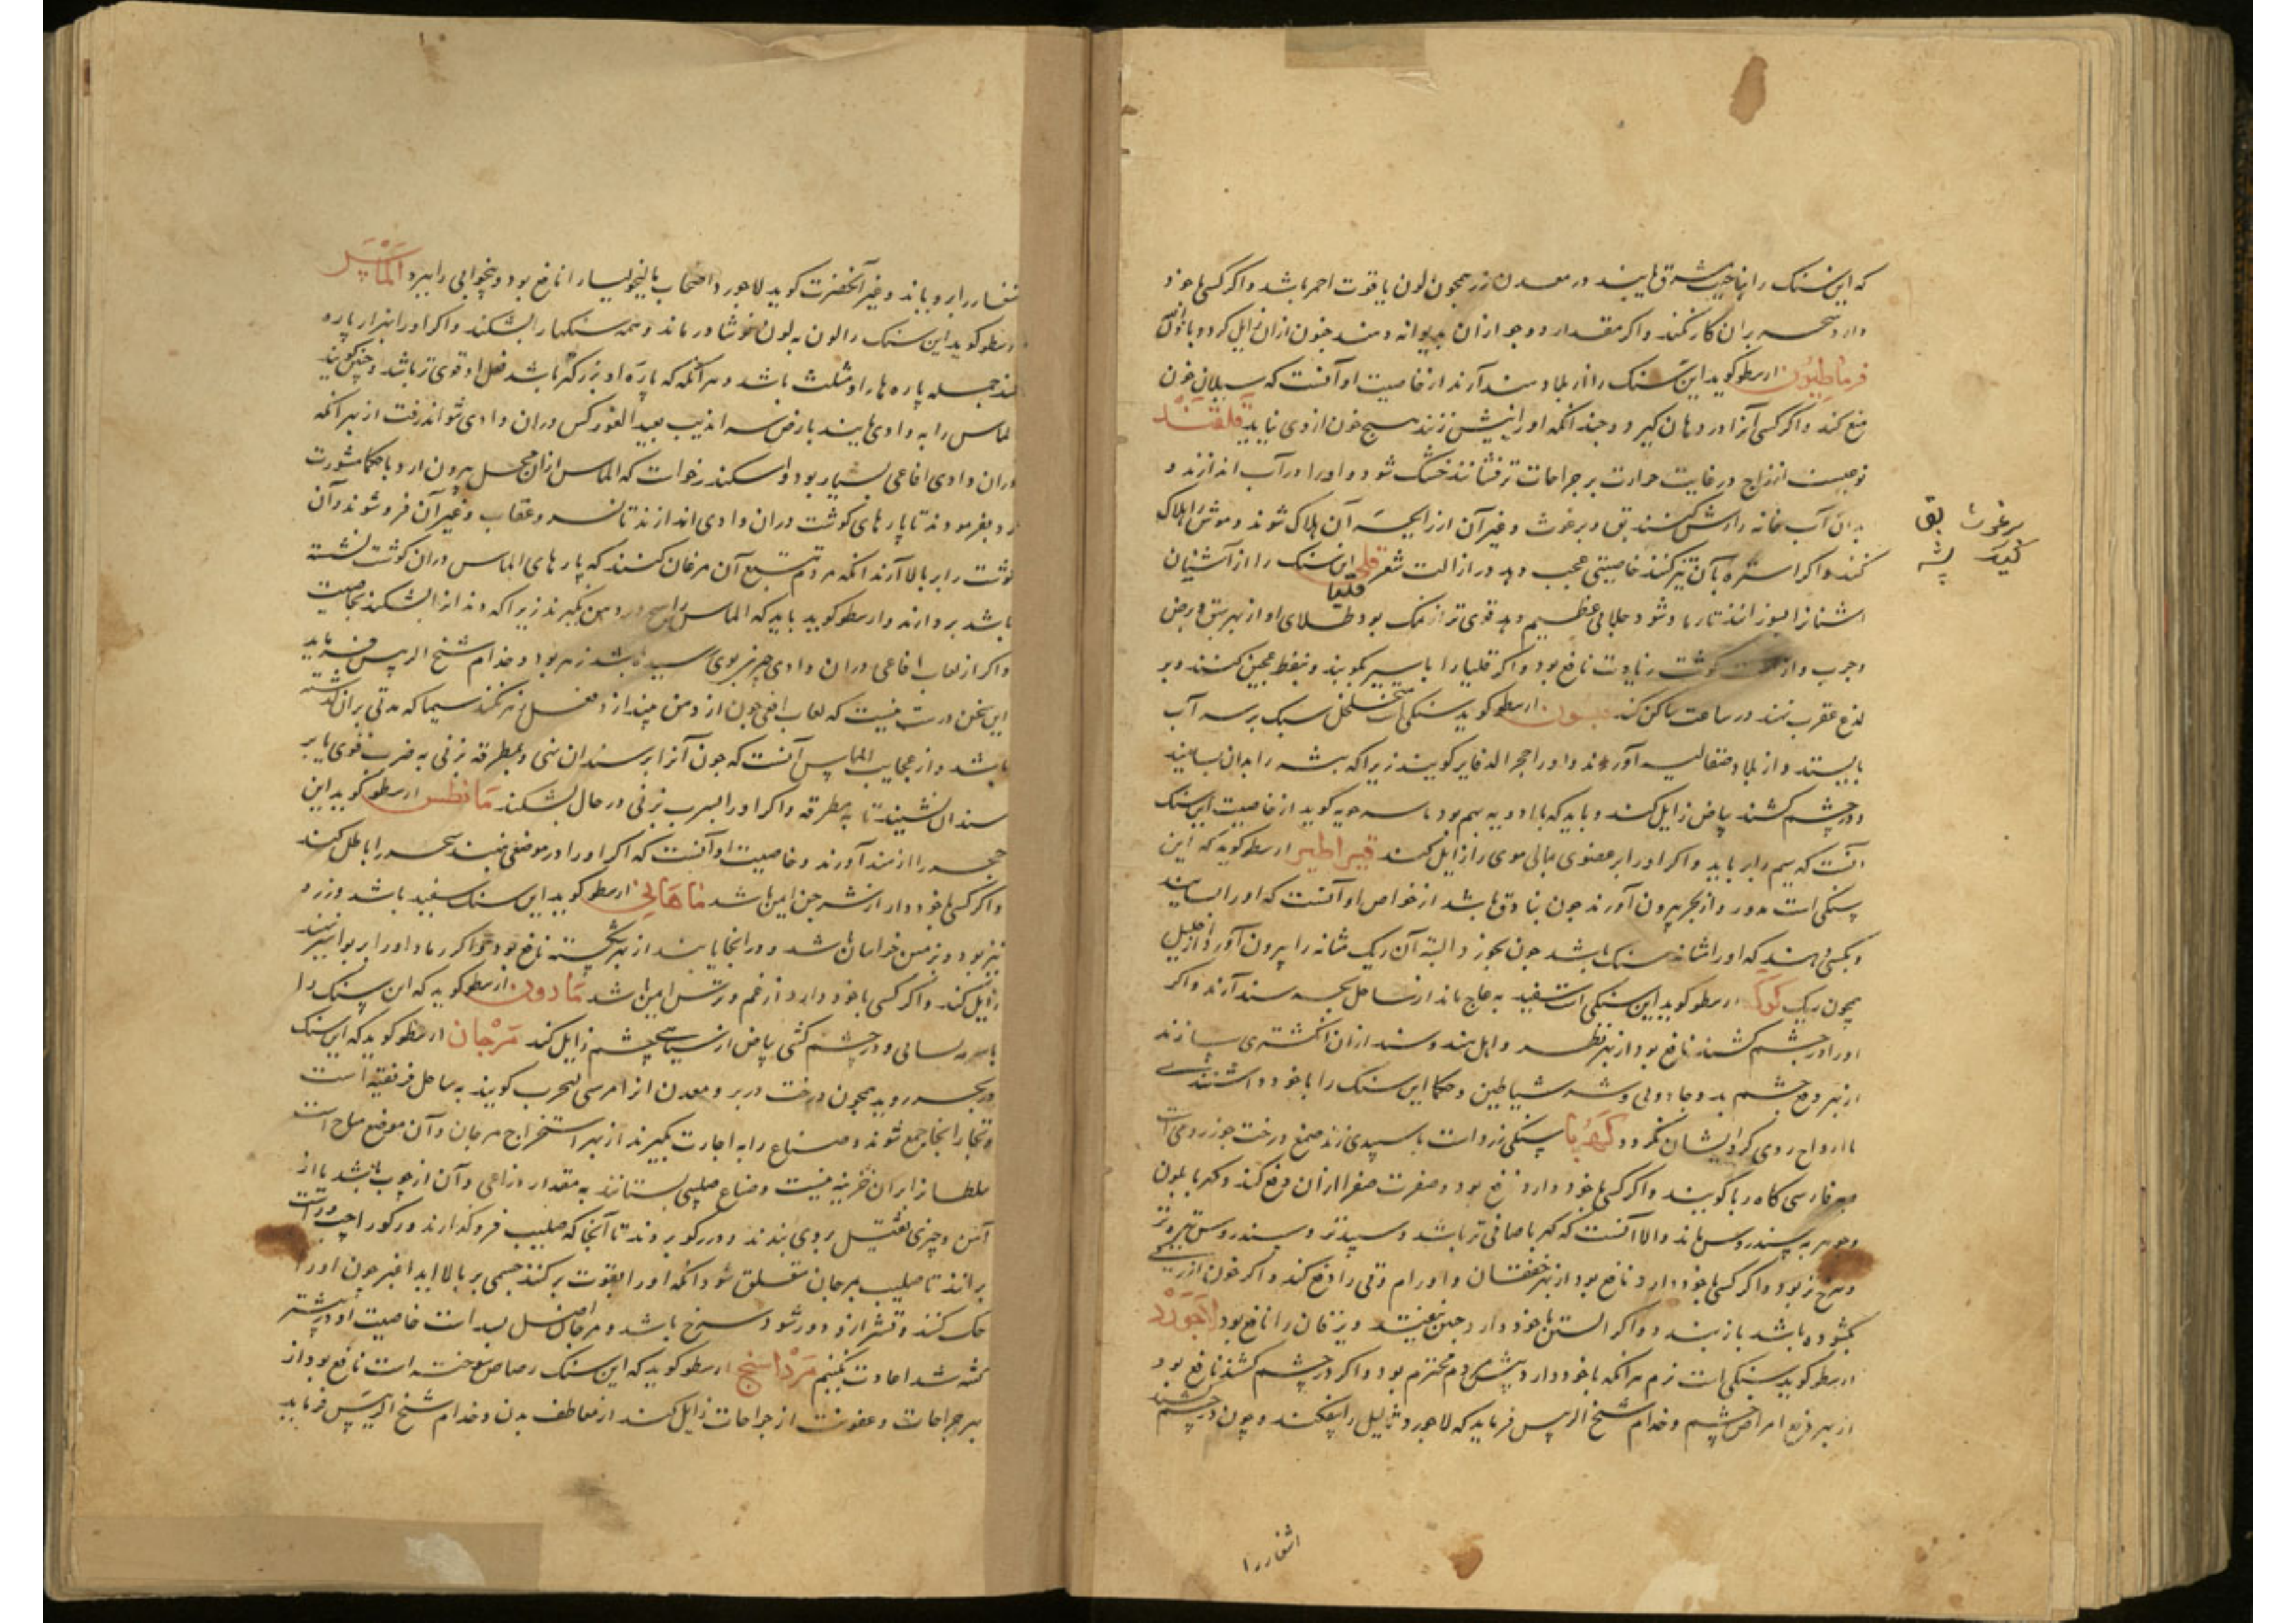 که این سنک را بناحیت مشرق یابند در معدن زر همچون لون یاقوت احمر باشد و اکر کسی با خود
دارد سحر بران کار نکند و اکر مقدار دو جو ازان بدیوانه دهند جنون ازان زایل کردد باذن الله
فرماطیون ارسطو کوید این سنک را از بلاد هند آرند از خاصیت او آنست که سیلان خون
منع کند و اکر کسی آنرا در دهان کیرد و چندانکه او را نیش زنند هیچ خون از وی نیاید قلقند
نوعیست از زاج در غایت حرارت بر جراحات تر فشانند خشک شود و او را در آب اندازند و
بدان آب خانه را رش کنند بق و برغوث و غیر آن از رایحه آن هلاک شوند و موش را هلاک
کند و اکر استره بآن تیز کنند خاصیتی عجب دهد در ازالت شعر این سنک را از آشنان
قلیا
اشنانرا بسوزانند تا رماد شود جلایی عظیم دهد قوی تر از نمک بود طلای او از بهر بهق و برص
و جرب و از کوشت زیادت نافع بود و اکر قلیا را با سیر بکوبند و بنفط عجین کنند و بر
لدغ عقرب نهند در ساعت ساکن کند ارسطو کوید سنکی است متخلخل سبک بر سر آب
بایستد و از بلاد صقالیه آورند و او را حجر الدفاتر کویند زیرا که بشره را بدان بسایند
و در چشم کشند بیاض زایل کند و باید که با ادویه بهم بود کوید از خاصیت این سنک
آنست که سیم را برباید و اکر او را بر عضوی مالی موی را زایل کند قیراطیر ارسطو کوید که این
سنکی است مدور و از بحر بیرون آورند چون بنادق باشد از خواص او آنست که او را بسایند
و بکسی دهند که او را مثانه سنک باشد چون بخورد البته آن ریک مثانه را بیرون آورد از احلیل
همچون ریک کوک ارسطو کوید این سنکی است سفید به عاج ماند از ساحل بحر سند آرند و اکر
او را در چشم کشند نافع بود از بهر نظر و اهل هند و سند ازان انکشتری سازند
از بهر دفع چشم بد و جادویی و شر شیاطین و حکما این سنک را با خود داشتندی
تا ارواح ردی کرد ایشان نکردد کهربا سنکی زرد است با سپیدی زند صمغ درخت جوز رومی است
بفارسی کاه ربا کویند و اکر کسی با خود دارد نافع بود و مضرت صفرا ازان دفع کند و کهربا بلون
و جوهر به سندروس ماند و الا آنست که کهربا صافی تر باشد و سپیدتر و سندروس تیره تر
و سرخ تر بود و اکر کسی با خود دارد نافع بود از بهر خفقان و اورام و قی را دفع کند و اکر خون از ریشی
کشوده باشد باز بندد و اکر آبستن با خود دارد جنین نیفتد و یرقان را نافع بود لاجورد
ارسطو کوید سنکی است نرم هر انکه با خود دارد پیش مردم محترم بود و اکر در چشم کشند نافع بود
از بهر دفع امراض چشم و خدام شیخ الرئیس فرماید که لاجورد ثالیل را بیفکند و چون در چشم کشند
برغوث بق
کیک پشه
اشفار را
اشفار را برویاند و غیر آنحضرت کوید لاجورد اصحاب مالیخولیا را نافع بود و بیخوابی را ببرد الماس
ارسطو کوید این سنک را لون به لون نوشادر ماند و همه سنکها را بشکند و اکر او را بهزار پاره
کنند جمله پاره ها را او مثلث باشد و هر آنکه که پاره او بزرکتر باشد فعل او قوی تر باشد و چنین کویند
الماس را به وادی یابند بارض سراندیب بعید الغور کس دران وادی نتواند رفت از بهر انکه
دران وادی افاعی بسیار بود و اسکندر خواست که الماس ازان محل بیرون آرد با حکما مشورت
کرد بفرمودند تا پارهای کوشت دران وادی اندازند تا نسر و عقاب و غیر آن فرو شوند و آن
کوشت را بر بالا آرند انکه مردم تتبع آن مرغان کنند که پارهای الماس دران کوشت نشسته
باشد بردارند و ارسطو کوید باید که الماس را هیچ در دهن نکیرند زیرا که دندانرا بشکند بخاصیت
و اکر از لعاب افاعی دران وادی چیزی بوی رسیده باشد زهر بود و خدام شیخ الرئیس فرماید
این سخن درست نیست که لعاب افعی چون از دهن بیندازد فعل زهر نکند سیما که مدتی بران کذشته
باشد و از عجایب الماس آنست که چون آنرا بر سندان نهی و بمطرقه زنی به ضرب قوی یا بر
سندان نشیند تا به مطرقه و اکر او را بسرب زنی در حال بشکند مانطس ارسطو کوید این
حجر را از هند آورند و خاصیت او آنست که اکر او را در موضعی نهند سحر را باطل کند
و اکر کسی با خود دارد از شر جن ایمن باشد ماهانی ارسطو کوید این سنک سفید باشد و زرد
نیز بود و زمین خراسان باشد و در انجا یابند از بهر شکسته نافع بود و اکر رماد او را بر بواسیر نهند
زایل کند و اکر کسی با خود دارد از غم و ترس ایمن باشد مادون ارسطو کوید که این سنک را
با سرمه بسائی و در چشم کشی بیاض از سیاهی چشم زایل کند مرجان ارسطو کوید که این سنک
در بحر روید همچون درخت در بر و معدن از امرسی الحرب کویند به ساحل افریقیه است
و تجار انجا جمع شوند و صناع را به اجارت بکیرند از بهر استخراج مرجان و آن موضع مباح است
سلطانرا بران خزینه نیست و صناع صلیبی بستانند به مقدار ذراعی و آن از چوب باشد یا از
آهن و چیزی ثقیل بروی بندند و در برند تا آنجا که صلیب فروکذارند
برانند تا صلیب بمرجان متعلق شود انکه او را بقوت برکنند جسمی بر بالا آید اغبر چون او را
حک کنند و قشر ازو دور شود سرخ باشد و مرجان اصل بسد است خاصیت او در پیشتر
کفته شد اعادت نکنیم مرداسنج ارسطو کوید که این سنک رصاص سوخته است نافع بود از
بهر جراحات و عفونت از جراحات زایل کند از معاطف بدن و خدام شیخ الرئیس فرماید